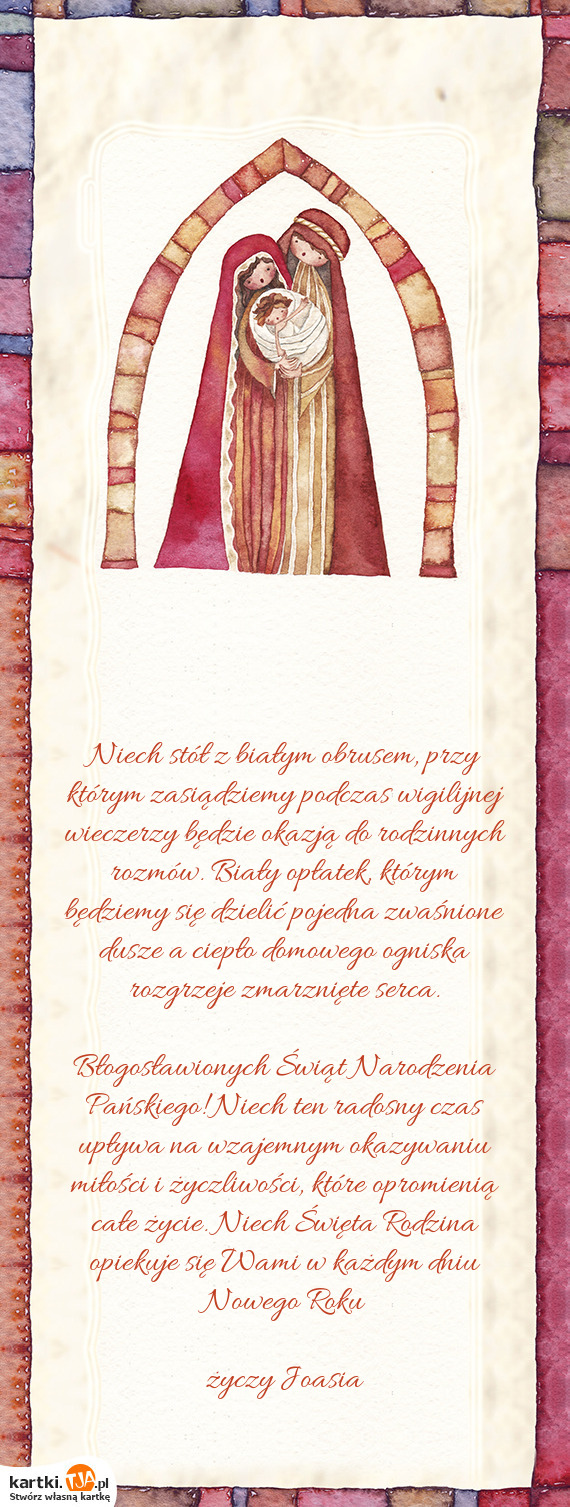 Niech stół z białym obrusem, przy
którym zasiądziemy podczas wigilijnej
wieczerzy będzie okazją do rodzinnych
rozmów. Biały opłatek, którym
będziemy się dzielić pojedna zwaśnione
dusze a ciepło domowego ogniska
rozgrzeje zmarznięte serca.
Błogosławionych Świąt Narodzenia
Pańskiego! Niech ten radosny czas
upływa na wzajemnym okazywaniu
miłości i życzliwości, które opromienią
całe życie. Niech Święta Rodzina
opiekuje się Wami w każdym dniu
Nowego Roku
życzy Joasia
kartki.TJA.pl
Stwórz własną kartkę